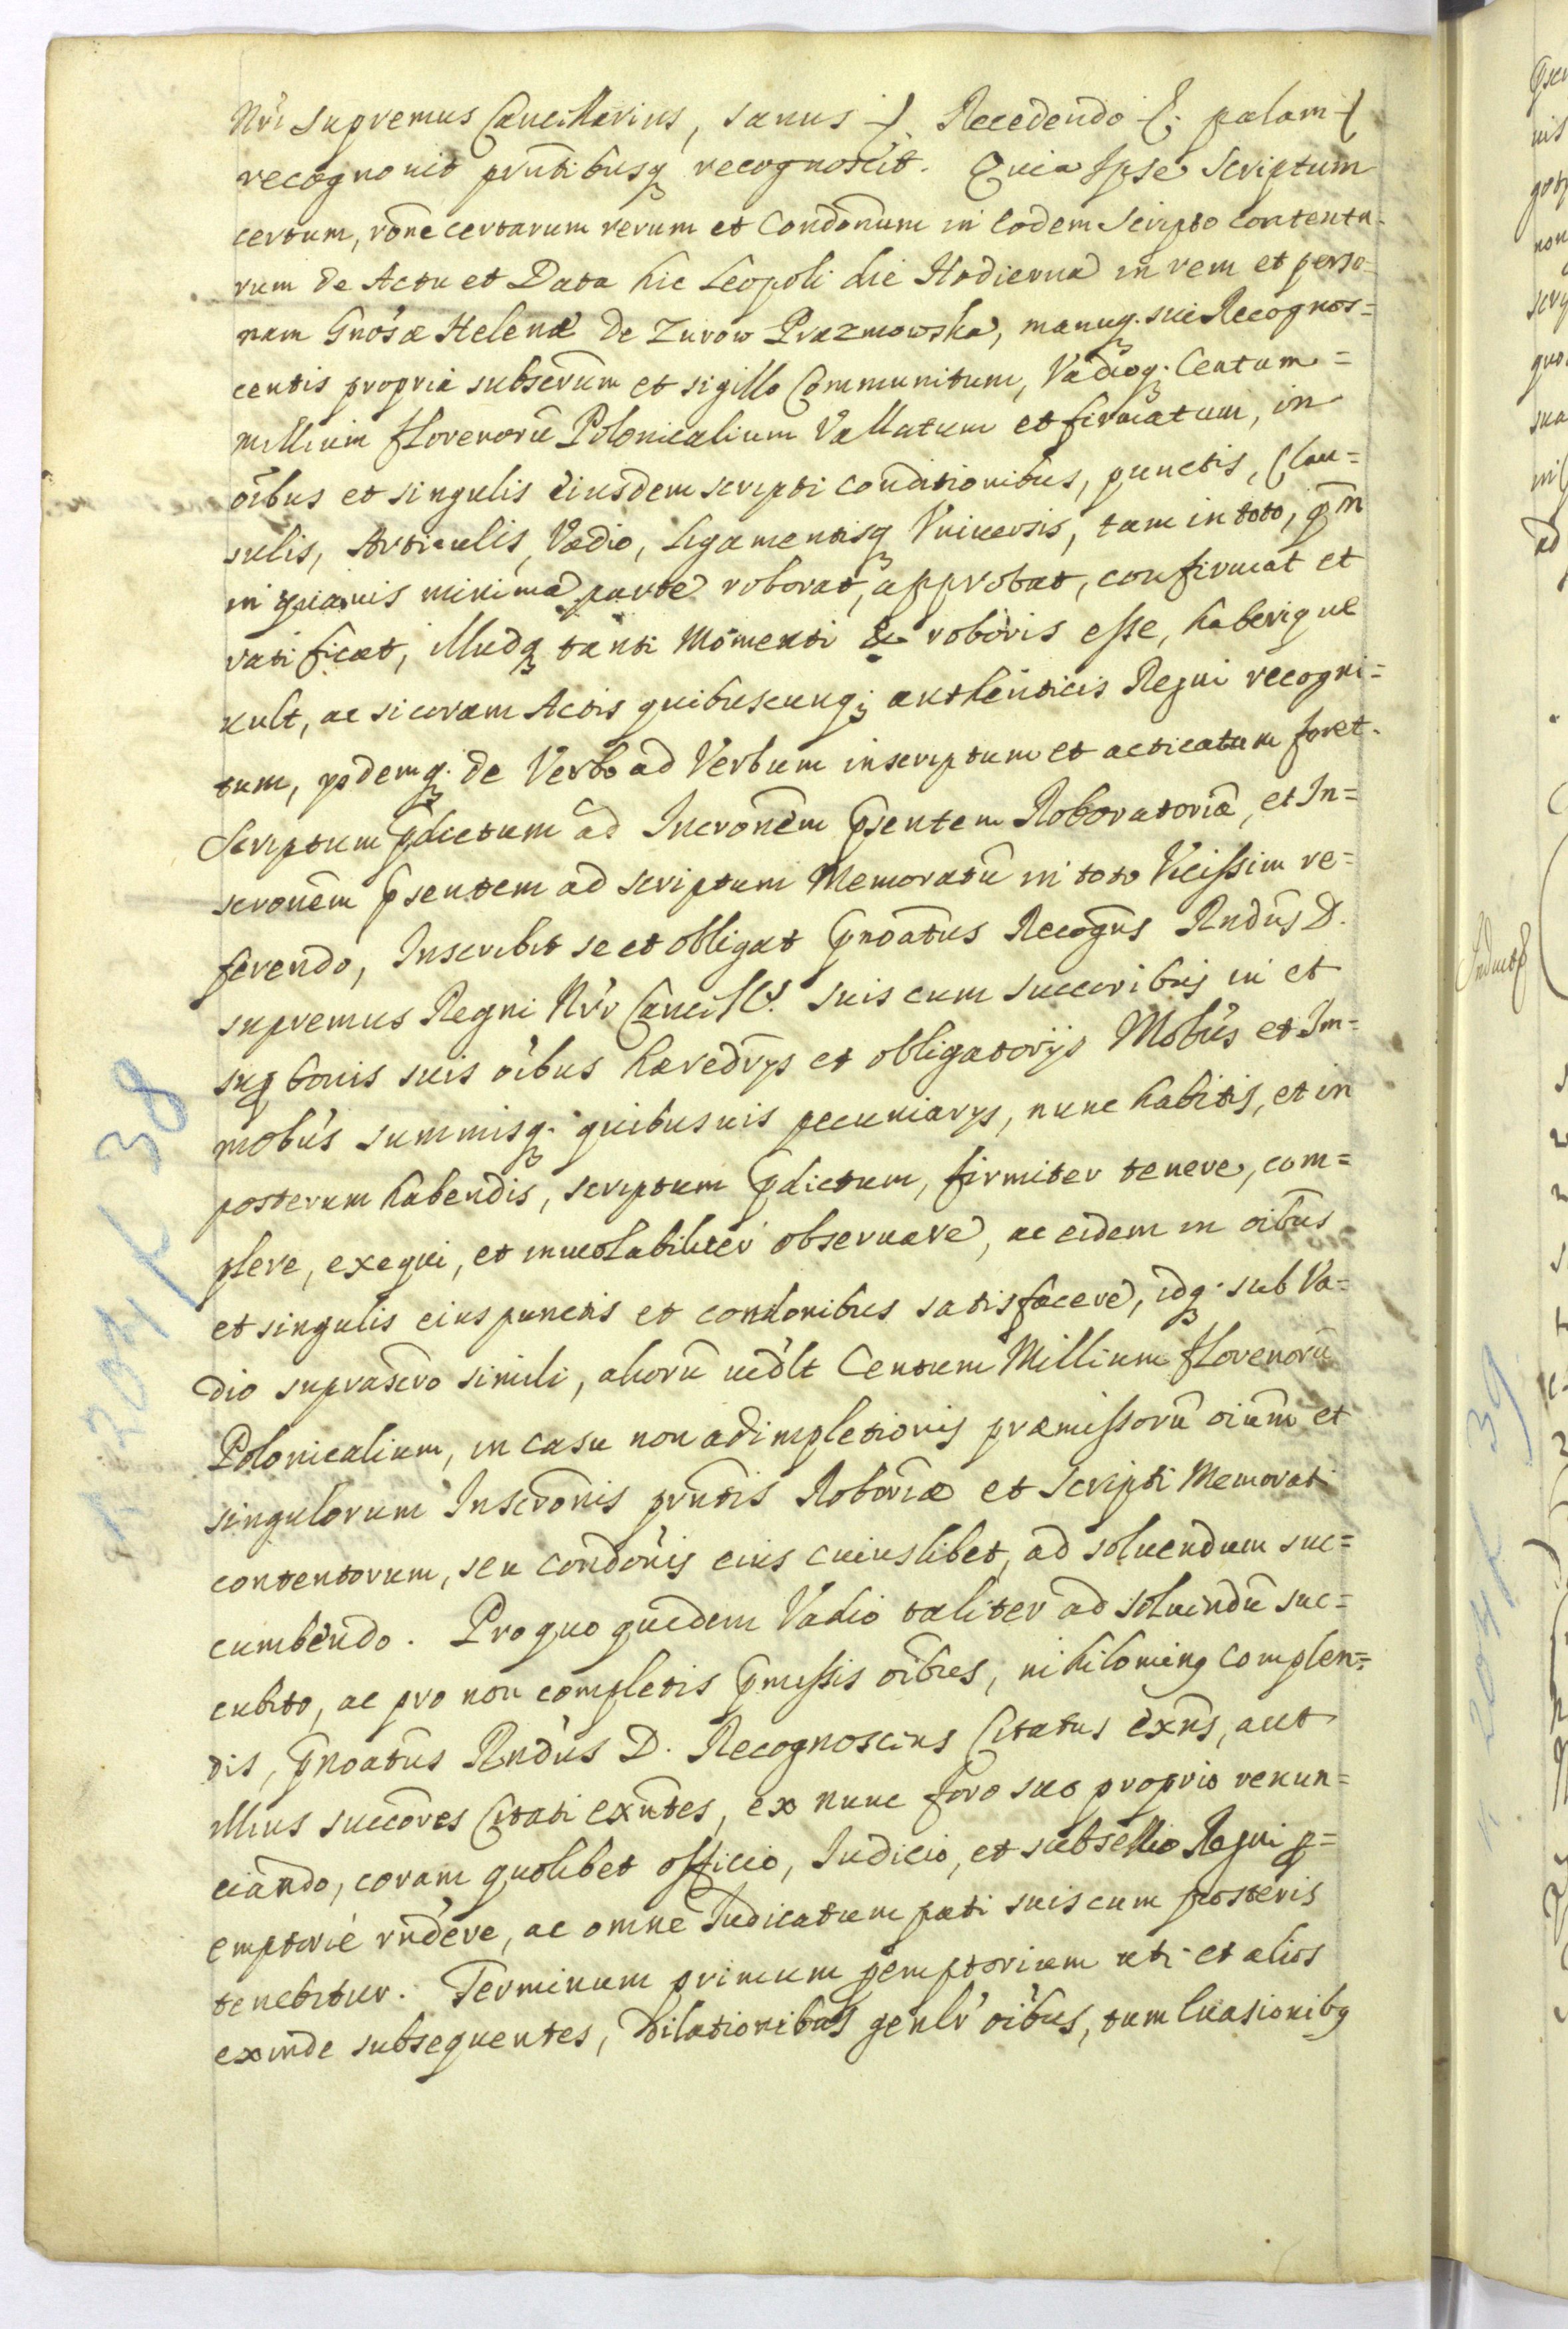 Nri Supremus Cancellarius, sanus Recedendo palam
recognovit pñtibusq recognoscit. Quia Ipse Scriptum
certum, rõne certarum rerum et Condõnum in eodem Scripto contenta-
rum de Actu et Data hic Leopoli die Hodierna in rem et perso-
nam Gnosæ Helenæ de Zurow Prazmowska, manuq. sui Recognos=
centis propria subscrum et sigillo Communitum, Vadioq. Centum=
millium florenorũ Polonicalium Vallatum et firmatum, in
oĩbus et singulis eiusdem scripti conditionibus, punctis, Clau=
sulis, Articulis, Vadio, Ligamentisq Vniuersis, tam in toto, qm̃
in quauis minima parte roborat, approbat, confirmat et
ratificat, illudq tanti momenti & roboris esse, haberique
uult, ac si coram Actis quibuscunq; authenticis Regni recogni=
tum, ijsdemq. de Verbo ad Verbum inscriptum et acticatum foret.
Scriptum p̃dictum ad Inscronẽm p̃sentem Roboratoriã, et In=
scronẽm p̃sentem ad scriptum Memoratũ in toto Vicissim re=
ferendo, Inscribit se et obligat p̃noatus Recogns Rndus D.
supremus Regni Nri Cancell. suis cum succoribus in et
suq bonis suis oĩbus hæredrijs et obligatorijs Mobus et Im=
mobus summisq. quibusuis pecuniarijs, nunc habitis, et in
posterum habendis, scriptum p̃dictum, firmiter tenere, com=
plere, exequi, et inuiolabiliter obseruare, ac eidem in oĩbus
et singulis eius punctis et condonibus satisfacere, idq. sub Va=
dio suprascro simili, aliorũ uidlt Centum Millium florenorũ
Polonicalium, in casu non adimpletionis præmissorũ oiũm et
singulorum Inscronis pñtis Roboriæ et scripti Memorati
contentorum, seu condonis eius cuiuslibet, ad soluendum suc=
cumbendo. Pro quo quidem Vadio taliter ad soluendũ suc=
cubito, ac pro non completis p̃missis oĩbus, nihilominq complen=
dis, p̃noatus Rndus D. Recognoscens Citatus exñs, aut
illius succores Citati exñtes, ex nunc foro suo proprio renun=
ciando, coram quolibet officio, Iudicio, et subsellio Regni p=
emptorie rñdere, ac omne Iudicatum pati suis cum posteris
tenebitur. Terminum primum pemptorium uti et alios
exinde subsequentes, Dilationibus genlr oĩbus, tum Euasionibq